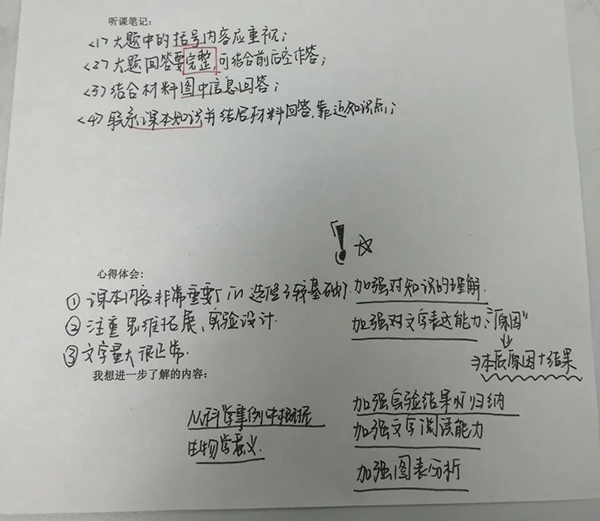 听课笔记:
<1>大题中的括号内容应重视;
<2>大题回答要完整,可结合前后空作答;
<3>结合材料图中信息回答;
<4>联系课本知识并结合材料回答.靠近知识点;
!☆
心得体会:
①课本内容非常重要,in 选择(较基础). 加强对知识的理解.
②注重思维拓展、实验设计. 加强对文字表达能力:"原因"
③文字量大很正常. →本质原因+结果
我想进一步了解的内容:
从科学事例中挖掘 加强实验结果的归纳
生物学意义. 加强文字阅读能力
加强图表分析